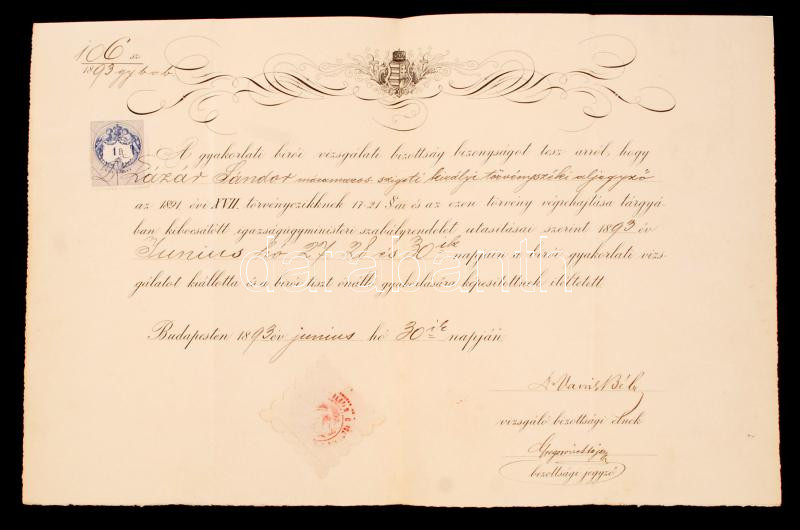 106 sz
1893 gy.b.b
1 ft
A gyakorlati birói vizsgálati bizottság bizonyságot tesz arról, hogy
Lázár Sándor máramaros szigeti királyi törvényszéki aljegyző
az 1891. évi XVII. törvényczikknek 17-21 §-ai és az ezen törvény végrehajtása tárgyá-
ban kibocsátott igazságügyministeri szabályrendelet utasításai szerint 1893 év
Junius hó 27. 28 és 30ik napjain a birói gyakorlati vizs-
gálatot kiállotta és a birói tiszt önálló gyakorlására képesítettnek ítéltetett.
Budapesten 1893 év junius hó 30ik napján
darabanth.com
Béla
vizsgáló bizottsági elnök
bizottsági jegyző